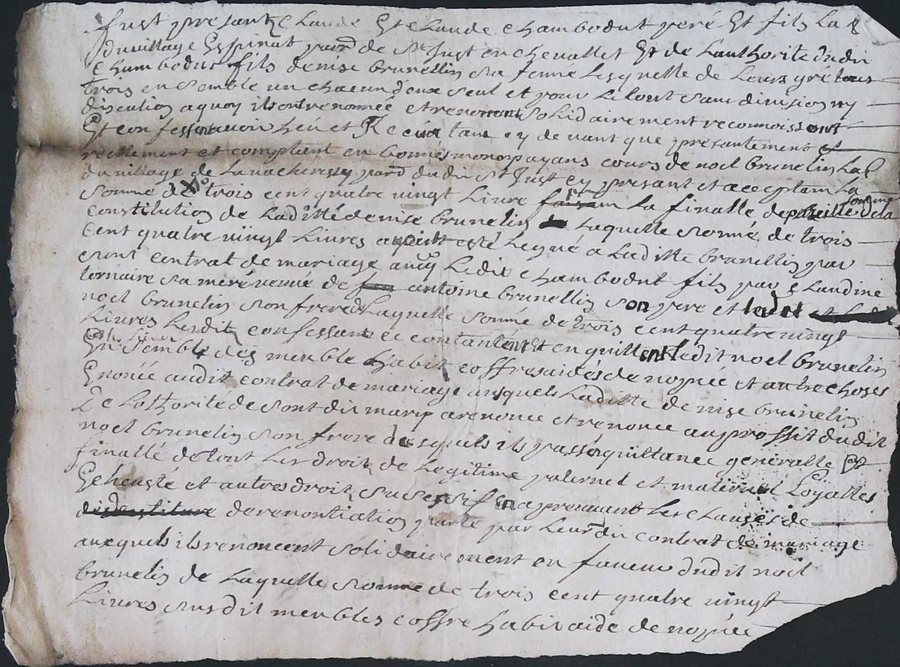 fust presant Claude Et Claude Chambodut peré Et fils La
du village Espinat parr de St Just en Chevallet Et de Lauthorite dudit
Chambodut fils denise brunellin sa fenne Lesquelle de Leurs gre tous
trois en semble un chacun deux seul et pour Le tout sans division ny
discution a quoy ils ont renonsée et renoncent solidairement reconnoissent
Et confessent avoir heu et Receu tant cy devant que presantement et
réellement et comptant en bonnes monoy ayans cours de noel brunelin Lab
du village de parr du dit St Just cy presant et acceptant La
somme de trois cent quatre vingt Livre La finalle de de la
constitution de Laditte denise brunelin Laquelle somme de trois
cent quatre vingt Livres esté Legué a Laditte brunellin par
contrat de mariage avec Ledit Chambodut fils par Claudine
sa méré veuve de antoine brunellin son pere et
noel brunelin son frere Laquelle somme de trois cent quatre vingt
Livres Lesdit confessant contantent en quittent ledit noel brunelin
En semble des meuble habit coffres aides de nopcée et autre choses
Enoncé audit contrat de mariage ausquels Laditte denise brunelin
De Lothorité de sondit mary a renoncé et renonce au proffit dudit
noel brunelin son frere desquels ils passé quittance generalle Et
finallé de tout Les droit de Legitime paternel et maternel Loyalles
Echeuste et autres droit successif en approuvant Les clauses de
de renontiation porté par Leurdit contrat de mariage
auxquels ils renoncent solidairement en faveur dudit noel
brunelin de Laquelle somme de trois cent quatre vingt
Livres susdit meubles coffre habit aide de nopcée